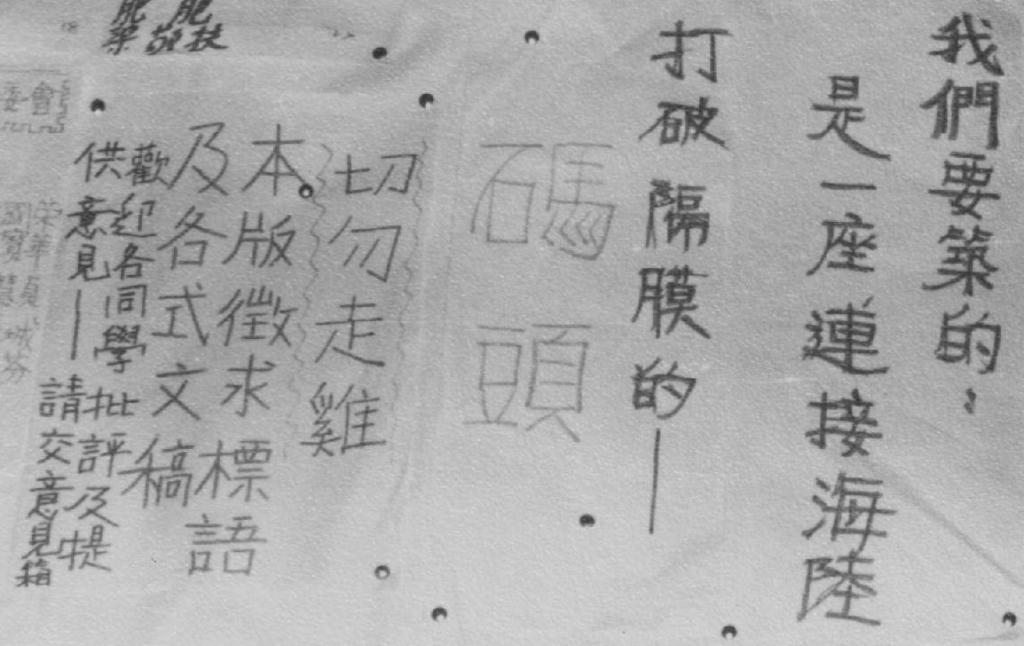 我們要築的、
是一座連接海陸
打破隔膜的—
碼頭
切勿走雞
本版徵求標語
及各式文稿
歡迎各同學批評及提
供意見—請交意見箱